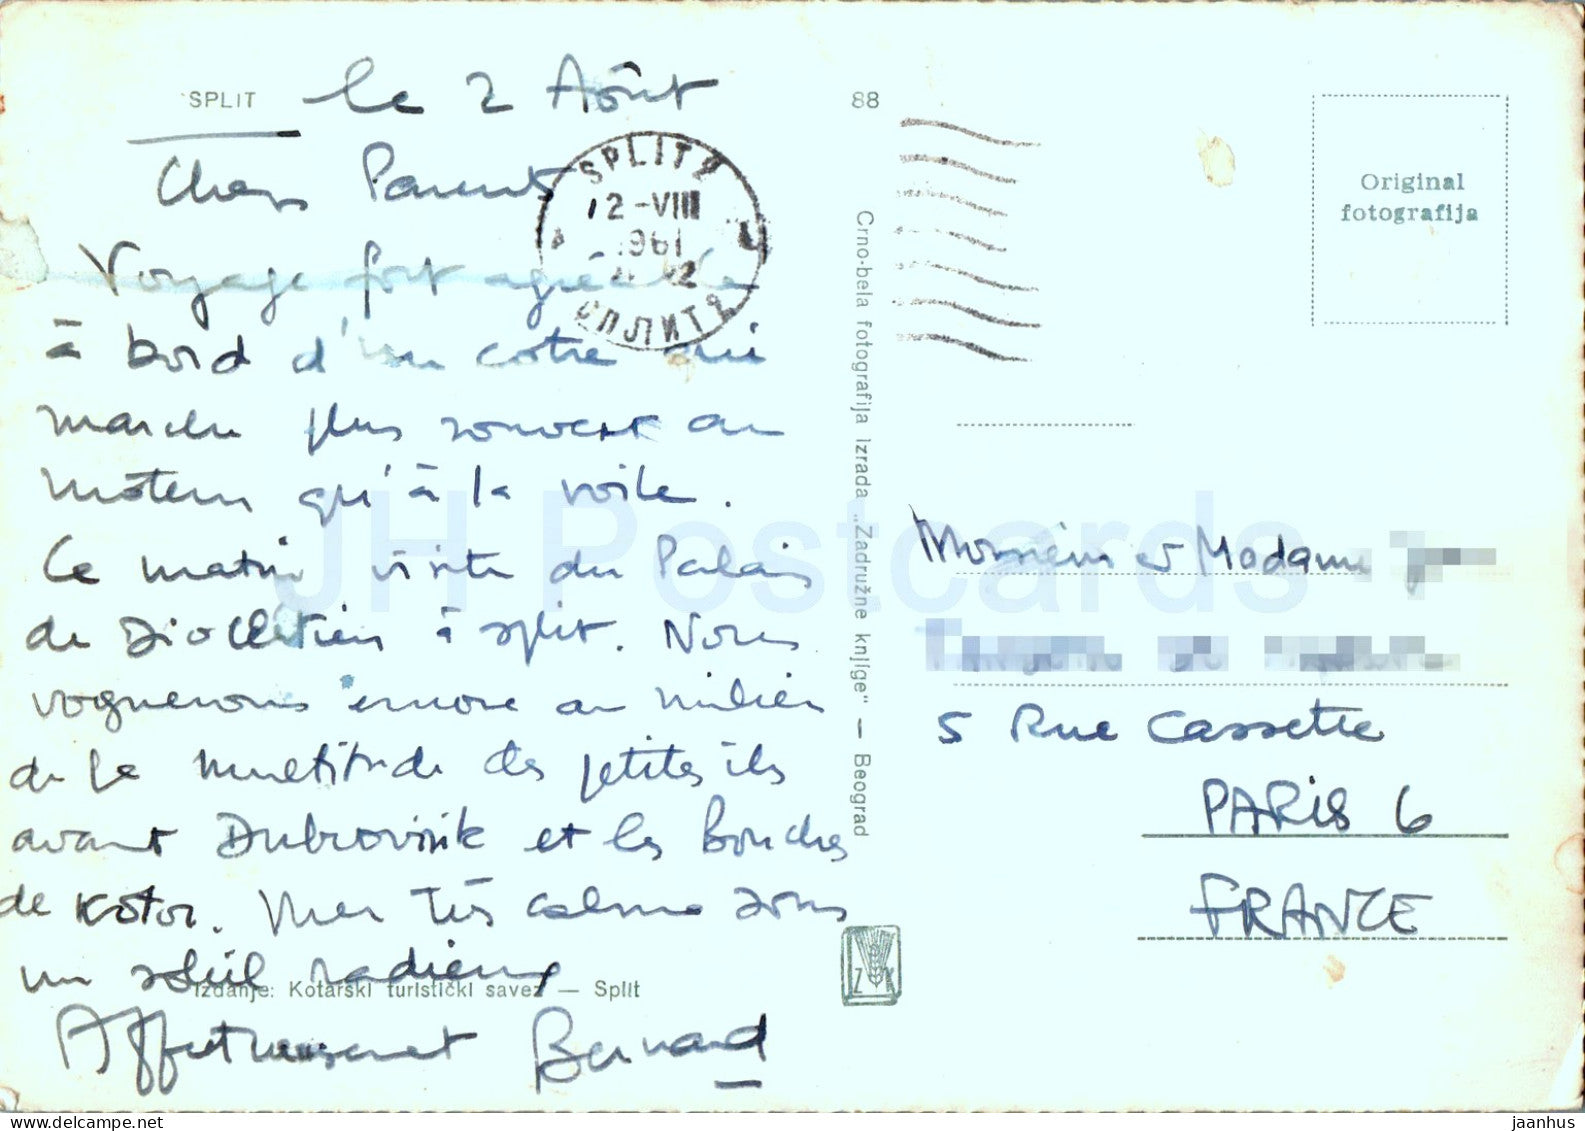 SPLIT le 2 Août
Chers Parents
Voyage fort agréable
à bord d'un cotre qui
marche plus souvent au
moteur qu'à la voile.
Ce matin visite du Palais
de Dioclétien à Split. Nous
voguerons encore au milieu
de la multitude des petites iles
avant Dubrovnik et les bouches
de Kotor. Mer très calme sous
un soleil radieux
Izdanje: Kotarski turistički savez — Split
Affectueusement Bernard
SPLIT 2
2-VIII
1961
СПЛИТ 2
88
Crno-bela fotografija Izrada „Zadružne knjige" — Beograd
Z K
Original
fotografija
Monsieur et Madame
5 Rue Cassette
PARIS 6
FRANCE
JH Postcards
jaanhus